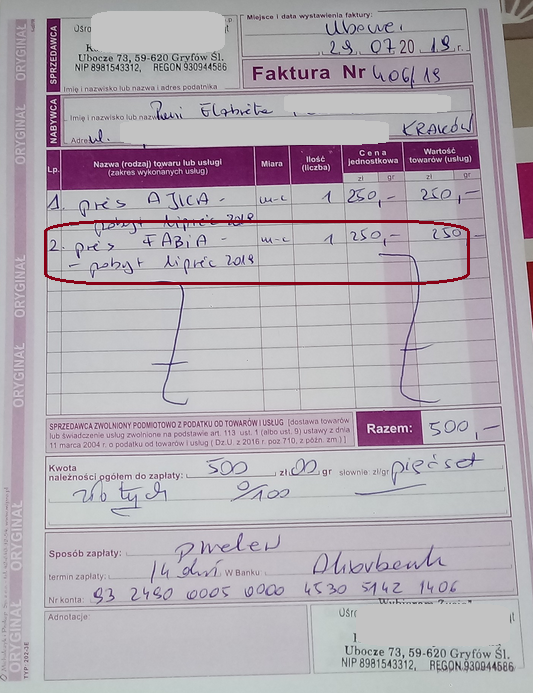 Uśro
K
Ubocze 73, 59-620 Gryfów Śl.
NIP 8981543312, REGON 930944586
Imię i nazwisko lub nazwa i adres podatnika
SPRZEDAWCA
Miejsce i data wystawienia faktury:
Ubocze
29.07 2019 r.
Faktura Nr 406/19
NABYWCA
Imię i nazwisko lub nazwa Pani Elżbieta
Adres ul. KRAKÓW
Lp. Nazwa (rodzaj) towaru lub usługi (zakres wykonanych usług) Miara Ilość (liczba) Cena jednostkowa Wartość towarów (usług)
zł gr zł gr
1. pies AJICA - m-c 1 250,- 250,-
pobyt lipiec 2019
2. pies FABIA - m-c 1 250,- 250,-
- pobyt lipiec 2019
SPRZEDAWCA ZWOLNIONY PODMIOTOWO Z PODATKU OD TOWARÓW I USŁUG [dostawa towarów
lub świadczenie usług zwolnione na podstawie art. 113 ust. 1 (albo ust. 9) ustawy z dnia
11 marca 2004 r. o podatku od towarów i usług ( Dz.U. z 2016 r. poz 710, z późn. zm.) ]
Razem: 500,-
Kwota
należności ogółem do zapłaty: 500 zł 00 gr słownie: zł/gr pięćset
złotych 0/100
Sposób zapłaty: przelew
termin zapłaty: 14 dni W Banku: Alior bank
Nr konta: 93 2490 0005 0000 4530 5142 1406
Adnotacje:
Uśro
Ubocze 73, 59-620 Gryfów Śl.
NIP 8981543312, REGON 930944586
ORYGINAŁ
ORYGINAŁ
ORYGINAŁ
ORYGINAŁ
ORYGINAŁ
ORYGINAŁ
ORYGINAŁ
TYP: 202-3E